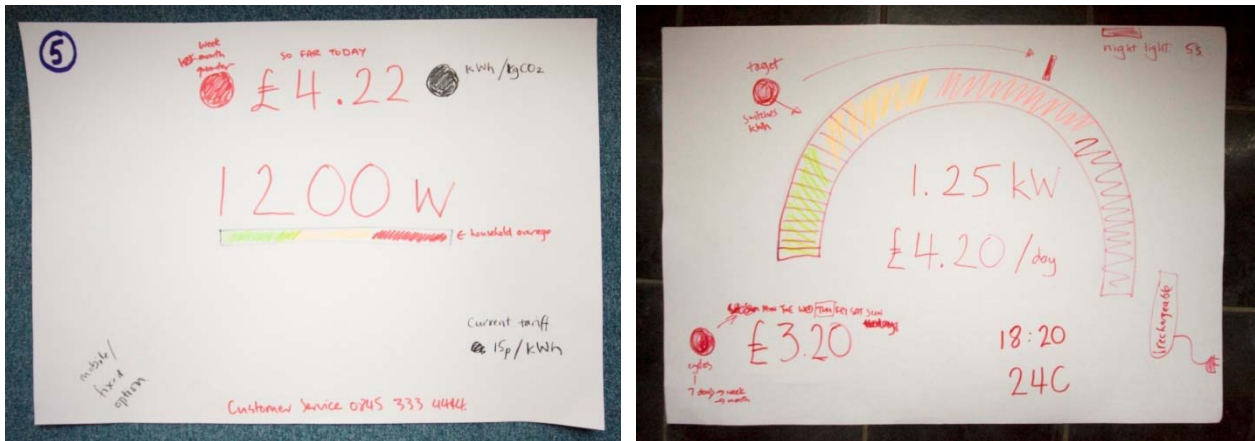 5
week
month
quarter
SO FAR TODAY
£4.22
kWh/kgCO2
1200 W
← household average
Current tariff
15p/kWh
mobile/
fixed
option
Customer Service 0845 333 4444.
night light 53
taget
switches
kWh
1.25 kW
£4.20/day
MON TUE WED THU FRI SAT SUN
£3.20
cycles
7 days → week
→ month
18:20
24C
rechargeable